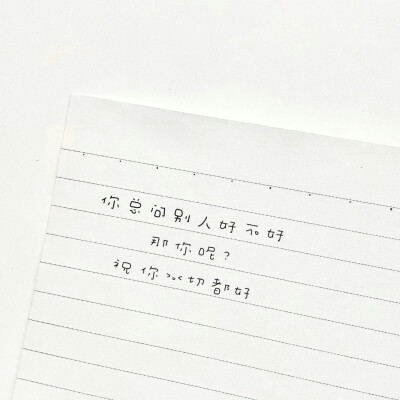 你总问别人好不好
那你呢？
祝你一切都好